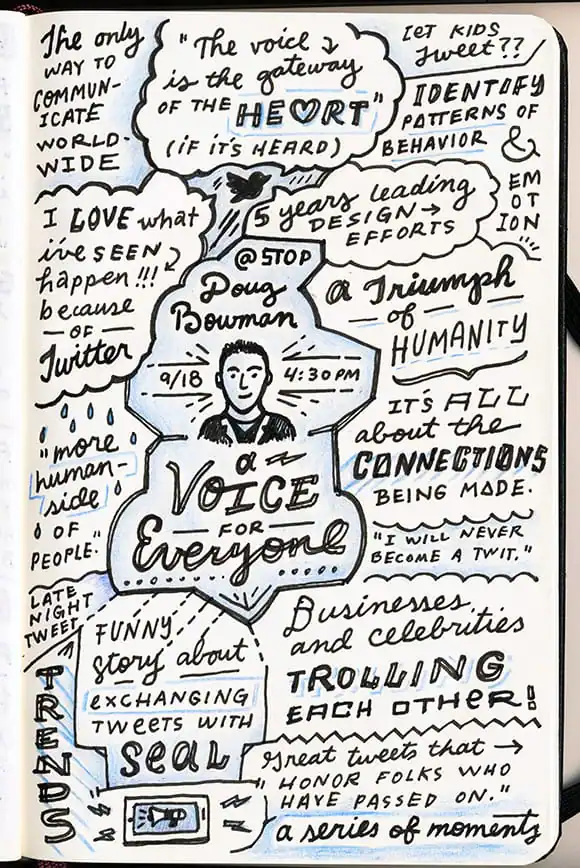 The only
WAY TO
COMMUN-
ICATE
WORLD-
WIDE
"The voice
is the gateway
OF THE HEART"
(IF IT'S HEARD)
LET KIDS
Tweet??
IDENTIFY
PATTERNS OF
BEHAVIOR &
EM
OT
ION
I LOVE what
i've SEEN
happen!!!
because
OF
Twitter
5 years leading
DESIGN →
EFFORTS
@STOP
Doug
Bowman
9/18 4:30PM
a
VOICE
FOR
Everyone
a Triumph
of
HUMANITY
IT'S ALL
about the
CONNECTIONS
BEING MADE.
"more
human-
side
OF
PEOPLE."
"I WILL NEVER
BECOME A TWIT."
LATE
NIGHT
TWEET
TRENDS
FUNNY
story about
exCHANGING
TWEETS WITH
SEAL
Businesses
and celebrities
TROLLING
EACH OTHER!
Great tweets that →
"HONOR FOLKS WHO
HAVE PASSED ON."
a series of moments